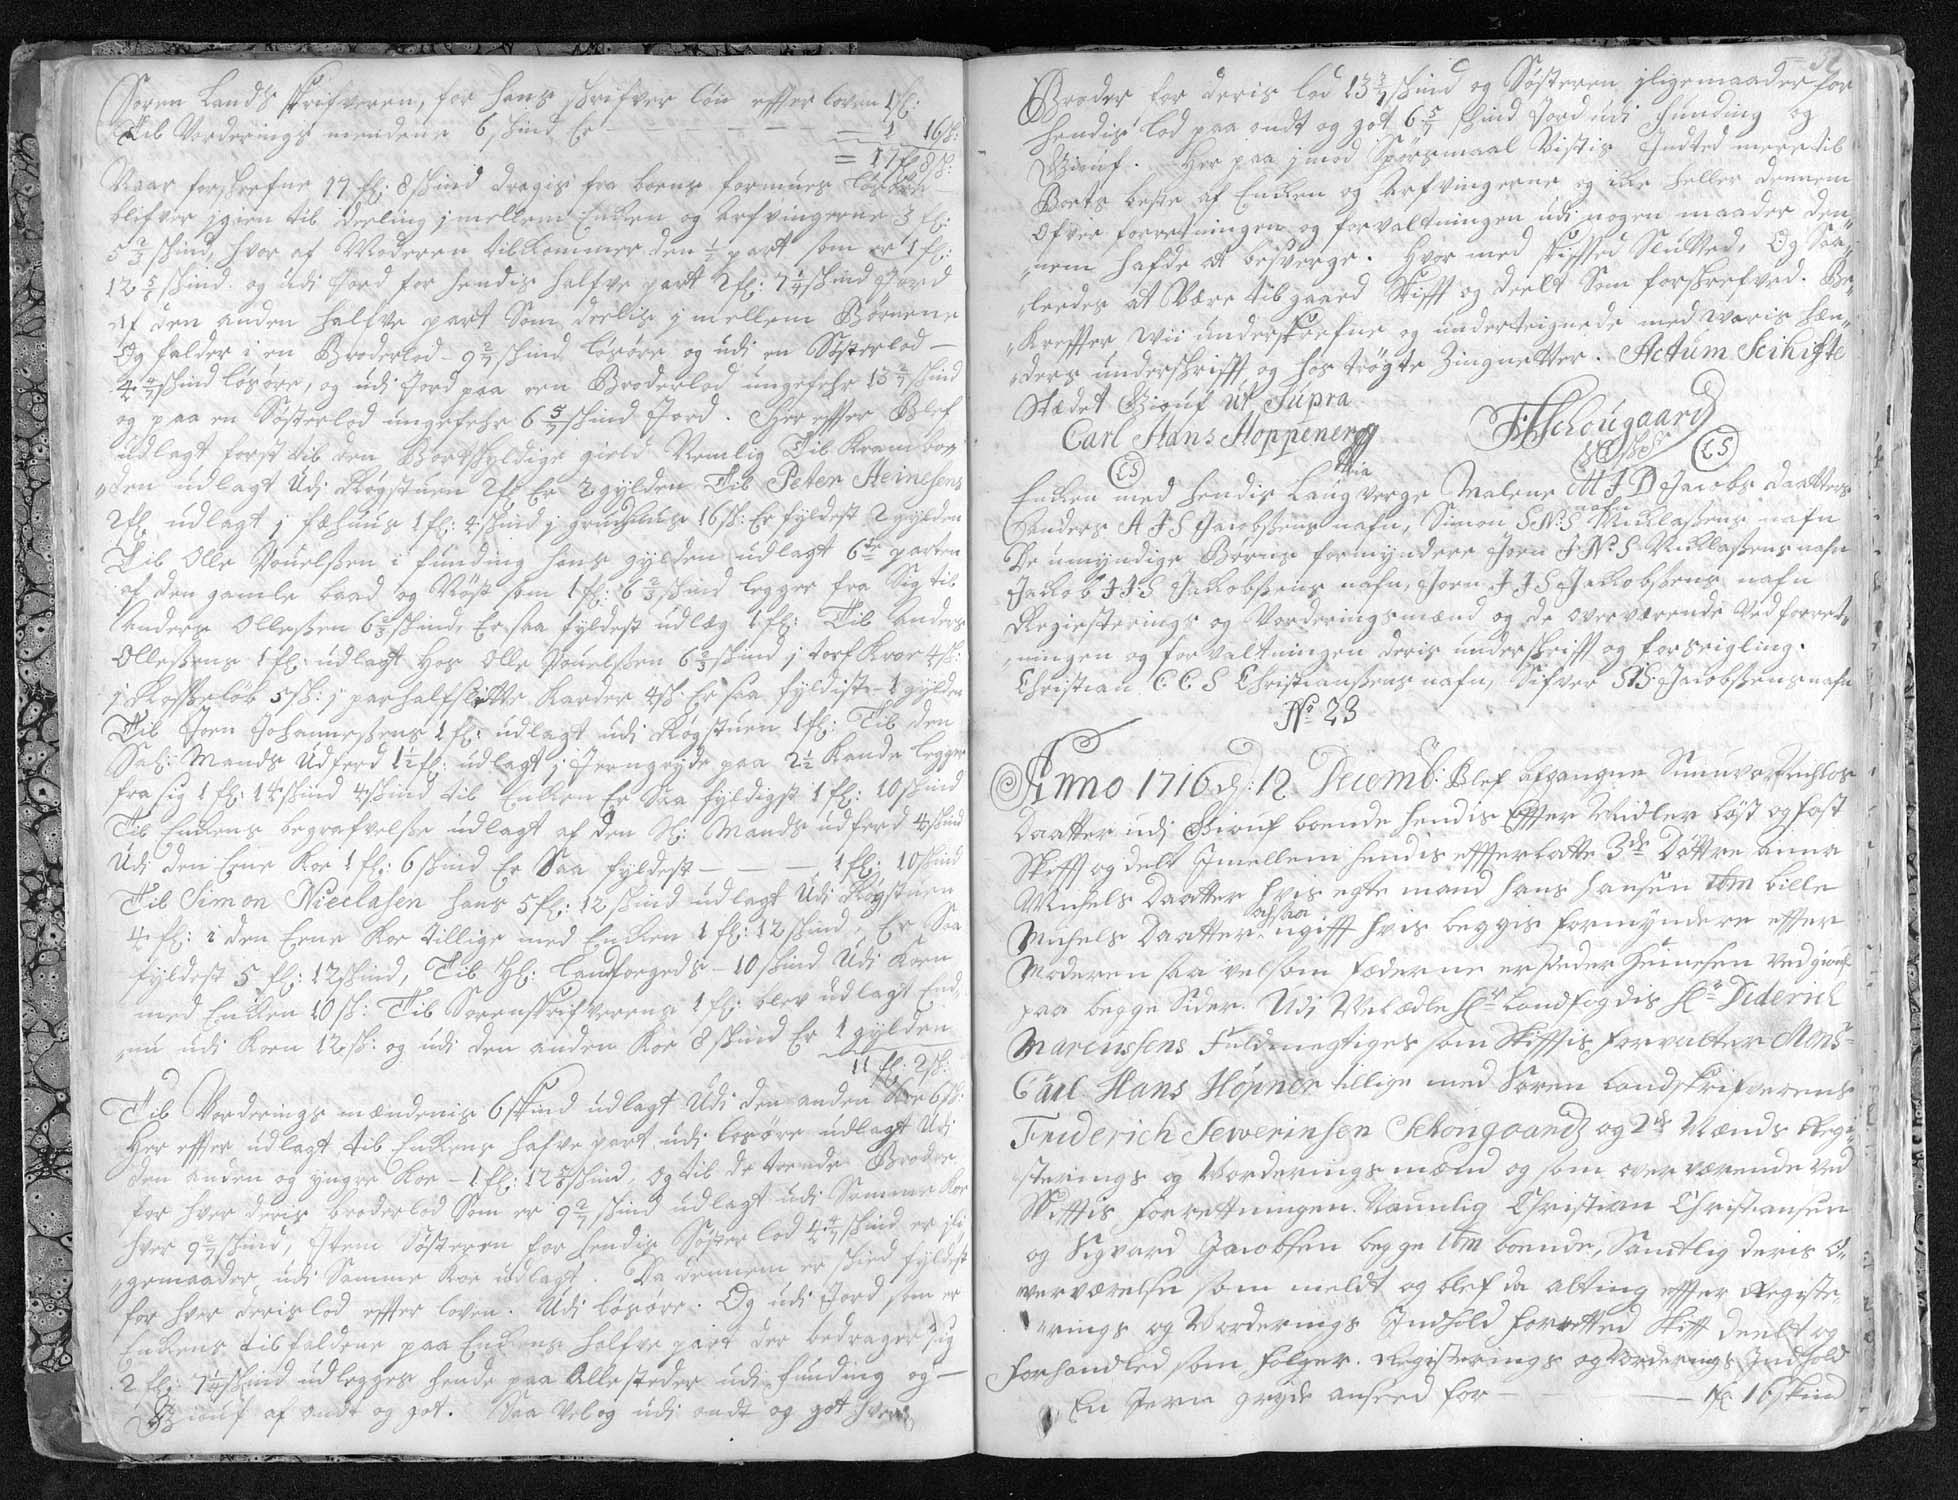 Soren Lands skrifveren, for hans skrifver lön effter loven 1 fl:
Til Vorderings mendene 6 skind Er — 1 16 sk:
= 17 fl 8 sk:
Naar forskrefne 17 fl: 8 skind dragis fra boens formues lösöre
blifver igien til deeling imellem Encken og Arfvingerne 3 fl:
skind, hvor af Moderen tilkommer den ½ part som er 1 fl:
12 skind. og udi Jord for hendis halfve part 2 fl: 7¼ skind Jord
af den anden halfve part Som deelis imellem Börnene
Og falder i en Broderlod 9 2/7 skind lösöre og udi en Sösterlod
4 4/7 skind lösöre, og udi Jord paa een Broderlod ungefehr 13 3/7 skind
og paa en Sösterlod ungefehr 6 5/7 skind Jord. Her effter Blef
udlagt forst til den Bortskyldige gield Nemlig Til Kramboe„
„den udlagt udi Rögstuen 2 fl Er 2 gylden Til Peter Heinesens
2 fl udlagt i fæhuus 1 fl: 4 skind i 16 sk: Er fyldest 2 gylden
Til Olle Pouelssen i funding hans gylden udlagt 6te parten
af den gamle baad og Nöst som 1 fl: 6 2/3 skind legger fra Sig til
Anders Ollessen 6 2/3 skind, Er saa fyldest udlæg 1 fl: Til Anders
Ollessens 1 fl: udlagt hos Olle Pouelssen 6 2/3 skind i torf Kroe 4 sk:
5 sk: i par halfslitte Karder 4 sk: Er saa fyldist 1 gylden
Til Joen Johannessens 1 fl: udlagt udi Rögstuen 1 fl: Til den
Sal: Mands Udferd 1½ fl: udlagt i Jerngryde paa 2½ Kande legger
fra sig 1 fl: 14 skind 4 skind til Encken Er Saa fyldigst 1 fl: 10 skind
Til Enckens begrafvelsse udlagt af den Sl: Mands udferd 4 skind
Udi den Eene Koe 1 fl: 6 skind Er Saa fyldest — 1 fl: 10 skind
Til Simon Nieclasen hans 5 fl: 12 skind udlagt Udi Rögstuen
4 fl: i den Eene Koe tillige med Encken 1 fl: 12 skind, Er Saa
fyldest 5 fl: 12 skind, Til Hl: landfogeds 10 skind Udi Koen
med Encken 10 sk: Til Sorenskrifverens 1 fl: blev udlagt
udi Koen 12 sk: og udi den anden Koe 8 skind Er 1 gylden
11 fl: 2 sk:
Til Vorderings mændenis 6 skind udlagt Udi den anden Koe 6 sk:
Her effter udlagt til Enckens halfve part udi lösöre udlagt Udi
den anden og yngre Koe 1 fl: 12 skind, Og til de trende Brödre
for hver deris broderlod Som er 9 2/7 skind udlagt udi Samme Koe
hver 9 2/7 skind, Item Södsteren for hendis Söster lod 4 4/7 skind er ili„
„gemaader udi Samme Koe udlagt. Da dennem er skied fyldest
for hver deris lod effter loven. Udi lösöre. Og udi Jord som er
Enckens tilfaldene paa Enckens halfve part der bedrager sig
2 fl: 7¼ skind udlegges hende paa Alle steder udi funding og
Giouf af ondt og got. Saa Vel og udi ondt og got hver
Broder for deris lod 13 3/7 skind og Södsteren iligemaader for
hendis lod paa ondt og got 6 5/7 skind Jord udi funding og
Giouf. Her paa imod Sporsmaal Vistis Indted meere til
Boets beste af Encken og Arfvingerne eg icke heller dennem
ofver forretningen og forvaltningen udi nogen maader den„
„nem hafde at besverge. Hvor med skifftet Sluttet, Og Saa„
„leedes at Være til gaaed Skifft og deelt Som forskrefved. Be„
„krefter Wii underskrefne og underteignede med Woris Hæn„
„ders underskrifft og hos trögte Zingnetter. Actum Scikifte
Stædet Giouf Ut Supra
Carl Hans Hoppener FSSchougaard
LS LS
Encken med hendis Laugverge Malene MJD Jacobs daatters
Sanders AJS Jacobssens nafn, Simon SNS Nicklassens nafn
De umyndige Börns formyndere Joen JNS Nicklassens nafn
Jacob JJS Jackobssens nafn, Joen JJS Jackobssens nafn
Regiesterings og Vorderingsmænd og de overværende Ved forret„
„ningen og forvaltningen deris underskrifft og forseigling.
Christian CCS Christianssens nafn, Sifver SJS Jacobssens nafn
No 23
Anno 1716 d: 12 Decemb: Blef afgangne Sunneva Michels
Daatter udi Giouf boende hendis Effter Midler löst og fast
Skifft og delt Imellem hendis effterlatte 3de Döttre Anna
Michels Daatter hvis egte mand Hans Hansen Ibm bille
Michels Daatter ugifft hvis beggis formyndere effter
Moderen saa vel som Faderne er Peder Heinesen Ved giouf
paa begge Sider. Udi Velædle Hr Landfogdis Hr Diderich
Marcussens Fuldmegtiges som Skifftis forvalter Mons:
Carl Hans Höpner tillige med Soren Landskrifverens
Friderich Sewerinsen Schougaards og 2de Mænds Regi„
sterings og Vorderings mænd og som over værende Ved
Skifftis forrettningen. Naunlig Christian Christiansen
og Sigvard Jacobsen begge Ibm boende, Samtlig deris o„
verværelse som meldt og blef da alting effter Registe„
„rings og Vorderings Indhold forretted Skifft deelt og
forhandled som folger. Registerings og Vorderings Indhold
En Jern gryde anseed for — 1 fl 16 skind